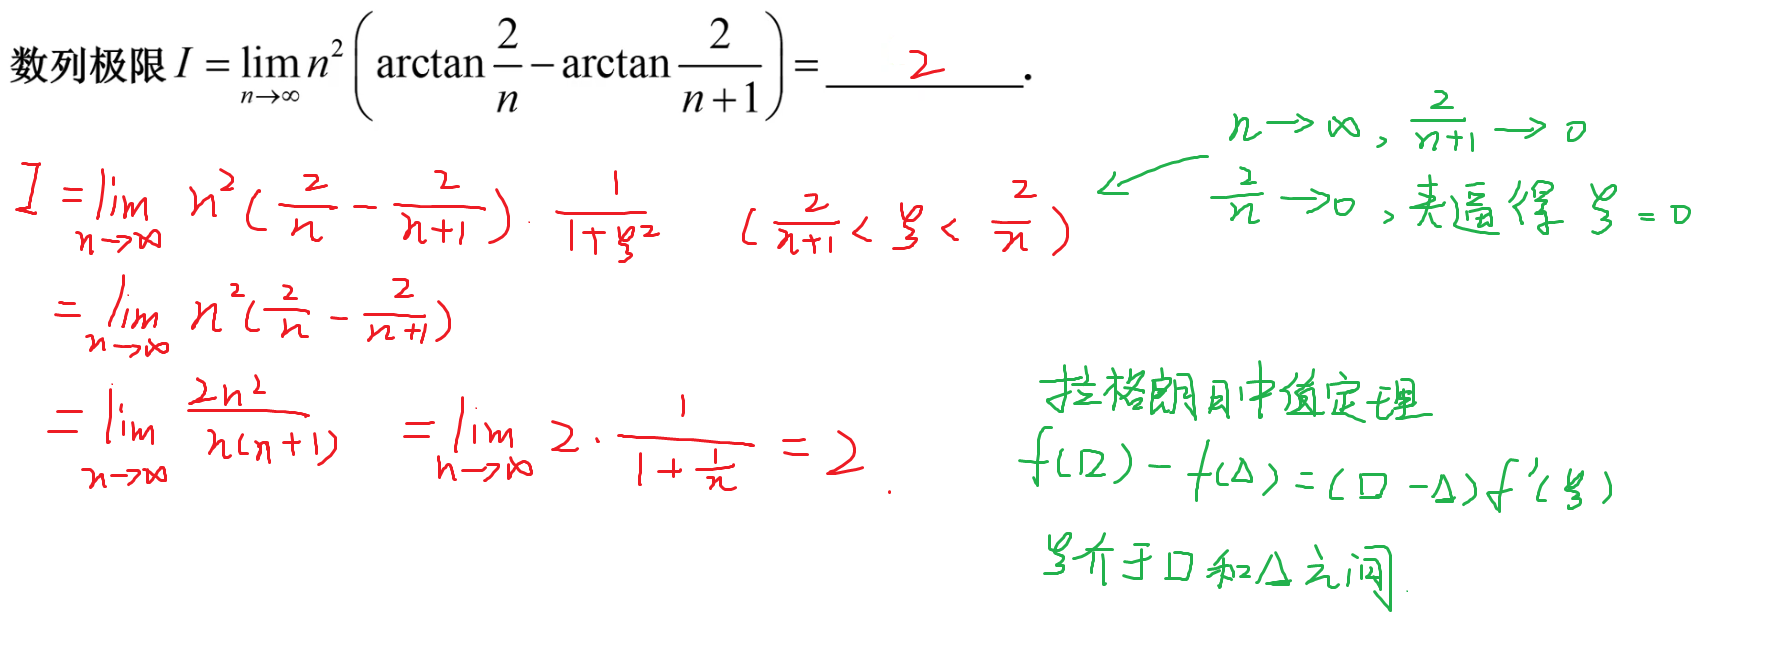 数列极限 I = lim_{n→∞} n² ( arctan 2/n − arctan 2/(n+1) ) = 2 .
I = lim_{n→∞} n² ( 2/n − 2/(n+1) ) · 1/(1+ξ²) ( 2/(n+1) < ξ < 2/n )
n→∞, 2/(n+1) → 0
2/n → 0, 夹逼得 ξ = 0
= lim_{n→∞} n² ( 2/n − 2/(n+1) )
= lim_{n→∞} 2n²/(n(n+1)) = lim_{n→∞} 2 · 1/(1+1/n) = 2 .
拉格朗日中值定理
f(□) − f(△) = (□ − △) f′(ξ)
ξ介于□和△之间.